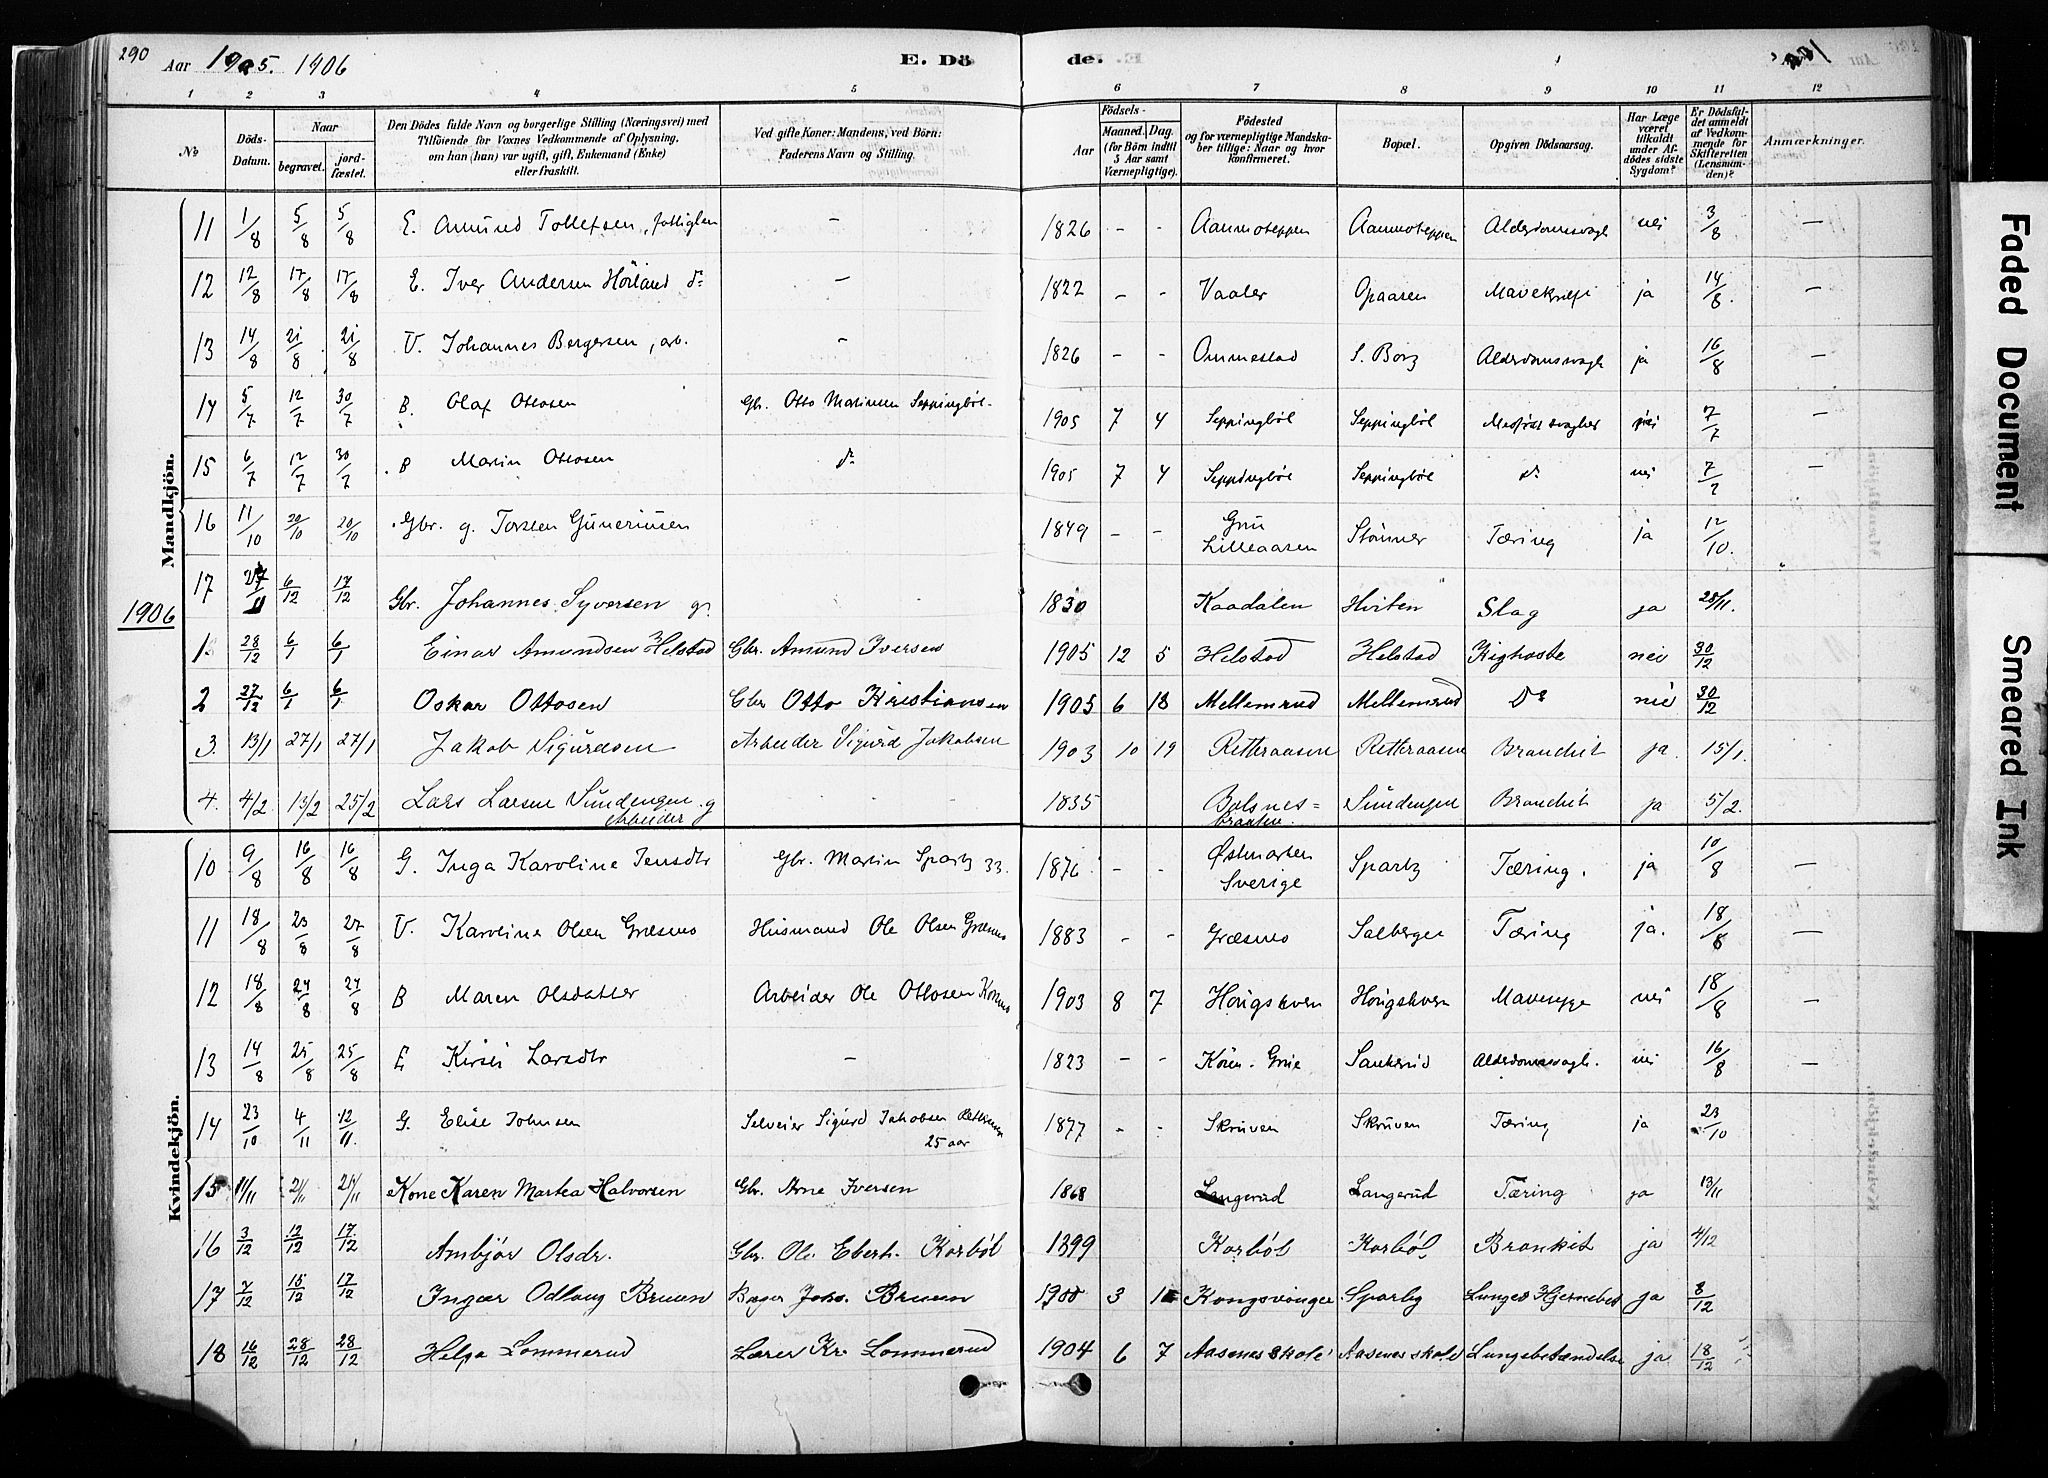 290
Aar 1905. 1906
E. Dö
de.
1 2 3 4 5
6 7 8 9 10 11 12
№
Döds-Datum.
Naar
begravet.
jord-fæstet.
Den Dödes fulde Navn og borgerlige Stilling (Næringsvei) med Tilföiende for Voxnes Vedkommende af Oplysning, om han (hun) var ugift, gift, Enkemand (Enke) eller fraskilt.
Ved gifte Koner: Mandens, ved Börn: Faderens Navn og Stilling.
Födsels-
Aar
Maaned. Dag.
(for Börn indtil 5 Aar samt Værnepligtige).
Födested og for værnepligtige Mandskaber tillige: Naar og hvor konfirmeret.
Bopæl.
Opgiven Dödsaarsag.
Har Læge været tilkaldt under Afdödes sidste Sygdom?
Er Dödsfaldet anmeldt af Vedkommende for Skifteretten (Lensmanden)?
Anmærkninger.
Mandkjön.
11 1/8 5/8 5/8 E. Amund Tollefsen, fattiglem — 1826 - - Aamoteppen Aamoteppen Alderdomssvagh nei 3/8 —
12 12/8 17/8 17/8 E. Iver Andersen Hörland do — 1822 - - Vaaler Opaasen Mavekræft ja 14/8. —
13 14/8 21/8 21/8 U. Johannes Bergersen, arb. — 1826 - - Ommestad S. Borg Alderdomssvagh ja 16/8 —
14 5/7 12/7 30/7 B. Olaf Ottosen Gbr. Otto Martinsen Seppingböl 1905 7 4 Seppingböl Seppingböl Medfødt svaghed nei 7/7 —
15 6/7 12/7 30/7 B Martin Ottosen do 1905 7 4 Seppingböl Seppingböl do nei 7/7 —
16 11/10 20/10 20/10 Gbr. g. Torsten Guneriusen 1849 - - Grue Lilleaasen Stömner Tæring ja 12/10.
17 27/11 6/12 17/12 Gbr. Johannes Syversen g. 1830 Kaadalen Hviten Slag ja 28/11.
1906
1 28/12 6/1 6/1 Einar Amundsen Helstad Gbr. Amund Iversen 1905 12 5 Helstad Helstad Kighoste nei 30/12
2 27/12 6/1 6/1 Oskar Ottosen Gbr Otto Kristiansen 1905 6 18 Mellemrud Mellemrud Do nei 30/12
3. 13/1 27/1 27/1 Jakob Sigurdsen Arbeider Sigurd Jakobsen 1903 10 19 Retteraasen Retteraasen Bronchit ja. 15/1.
4. 4/2 13/2 25/2 Lars Larsen Sundengen g Arbeider 1835 Bolsnes=braaten. Sundengen Bronchit ja 5/2.
Kvindekjön.
10 9/8 16/8 16/8 G. Inga Karoline Jensdtr Gbr. Martin Sparby 33. 1876 - - Østmarken Sverige Sparby Tæring. ja 10/8 —
11 18/8 23/8 27/8 U. Karoline Olsen Græsmo Husmand Ole Olsen Græsmo 1883 - - Græsmo Solberget Tæring ja. 18/8 —
12 18/8 24/8 24/8 B Maren Olsdatter Arbeider Ole Ottosen 1903 8 7 Haugskven Haugskven Mavesyge nei 18/8 —
13 14/8 25/8 25/8 E Kirsti Larsdtr — 1823 - - Grue Alderdomssvagh. nei 16/8 —
14 23/10 4/11 12/11. G. Elise Johnsen Selveier Sigurd Jakobsen 25 aar 1877 - - Skruven Skruven Tæring ja 23/10
15 11/11 21/11 24/11 Kone Karen Martea Halvorsen Gbr. Arne Iversen 1868 Langerud Langerud Tæring ja 13/11
16 3/12 12/12 17/12 Ambjör Olsdr. Gbr. Ole Eberh. Korböl 1899 Korböl Korböl Bronkit ja 4/12
17 7/12 15/12 17/12 Ingar Odlaug Bruun Bager Johs. Bruun 1900 3 Kongsvinger Sparby Lunge & Hjernebet ja 8/12
18 16/12 28/12 28/12 Helga Lommerud Lærer Kr. Lommerud 1904 6 7 Aasenes skole Aasenes skole Lungebetændelse ja 18/12
Faded Document
Smeared Ink